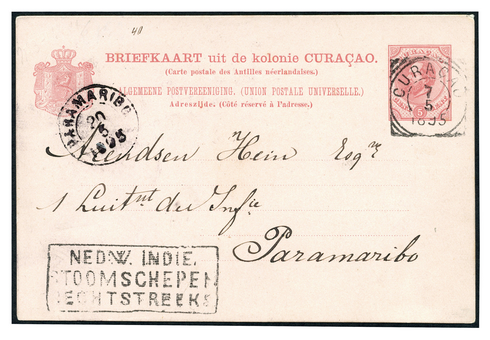 40
BRIEFKAART uit de kolonie CURAÇAO.
(Carte postale des Antilles néerlandaises.)
ALGEMEENE POSTVEREENIGING. (UNION POSTALE UNIVERSELLE.)
Adreszijde. (Côté réservé à l'adresse.)
CURAÇAO
7
5
1895
PARAMARIBO
20
5
1895
Hein Esqre
1 Luitnt der Infie
Paramaribo
NED. W. INDIE.
STOOMSCHEPEN
RECHTSTREEKS